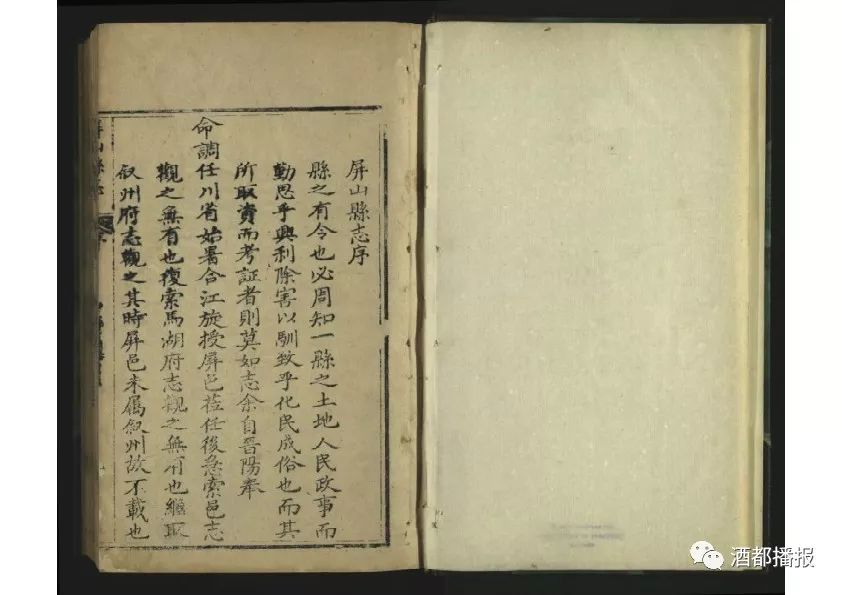 屏山縣志序
縣之有令也必周知一縣之土地人民政事而
勤思乎興利除害以馴致乎化民成俗也而其
所取資而考証者則莫如志余自晉陽奉
命調任川省始署合江旋授屏邑莅任後急索邑志
觀之無有也復索馬湖府志觀之無有也繼取
叙州府志觀之其時屏邑未属叙州故不載也
屏山縣志
酒都播报